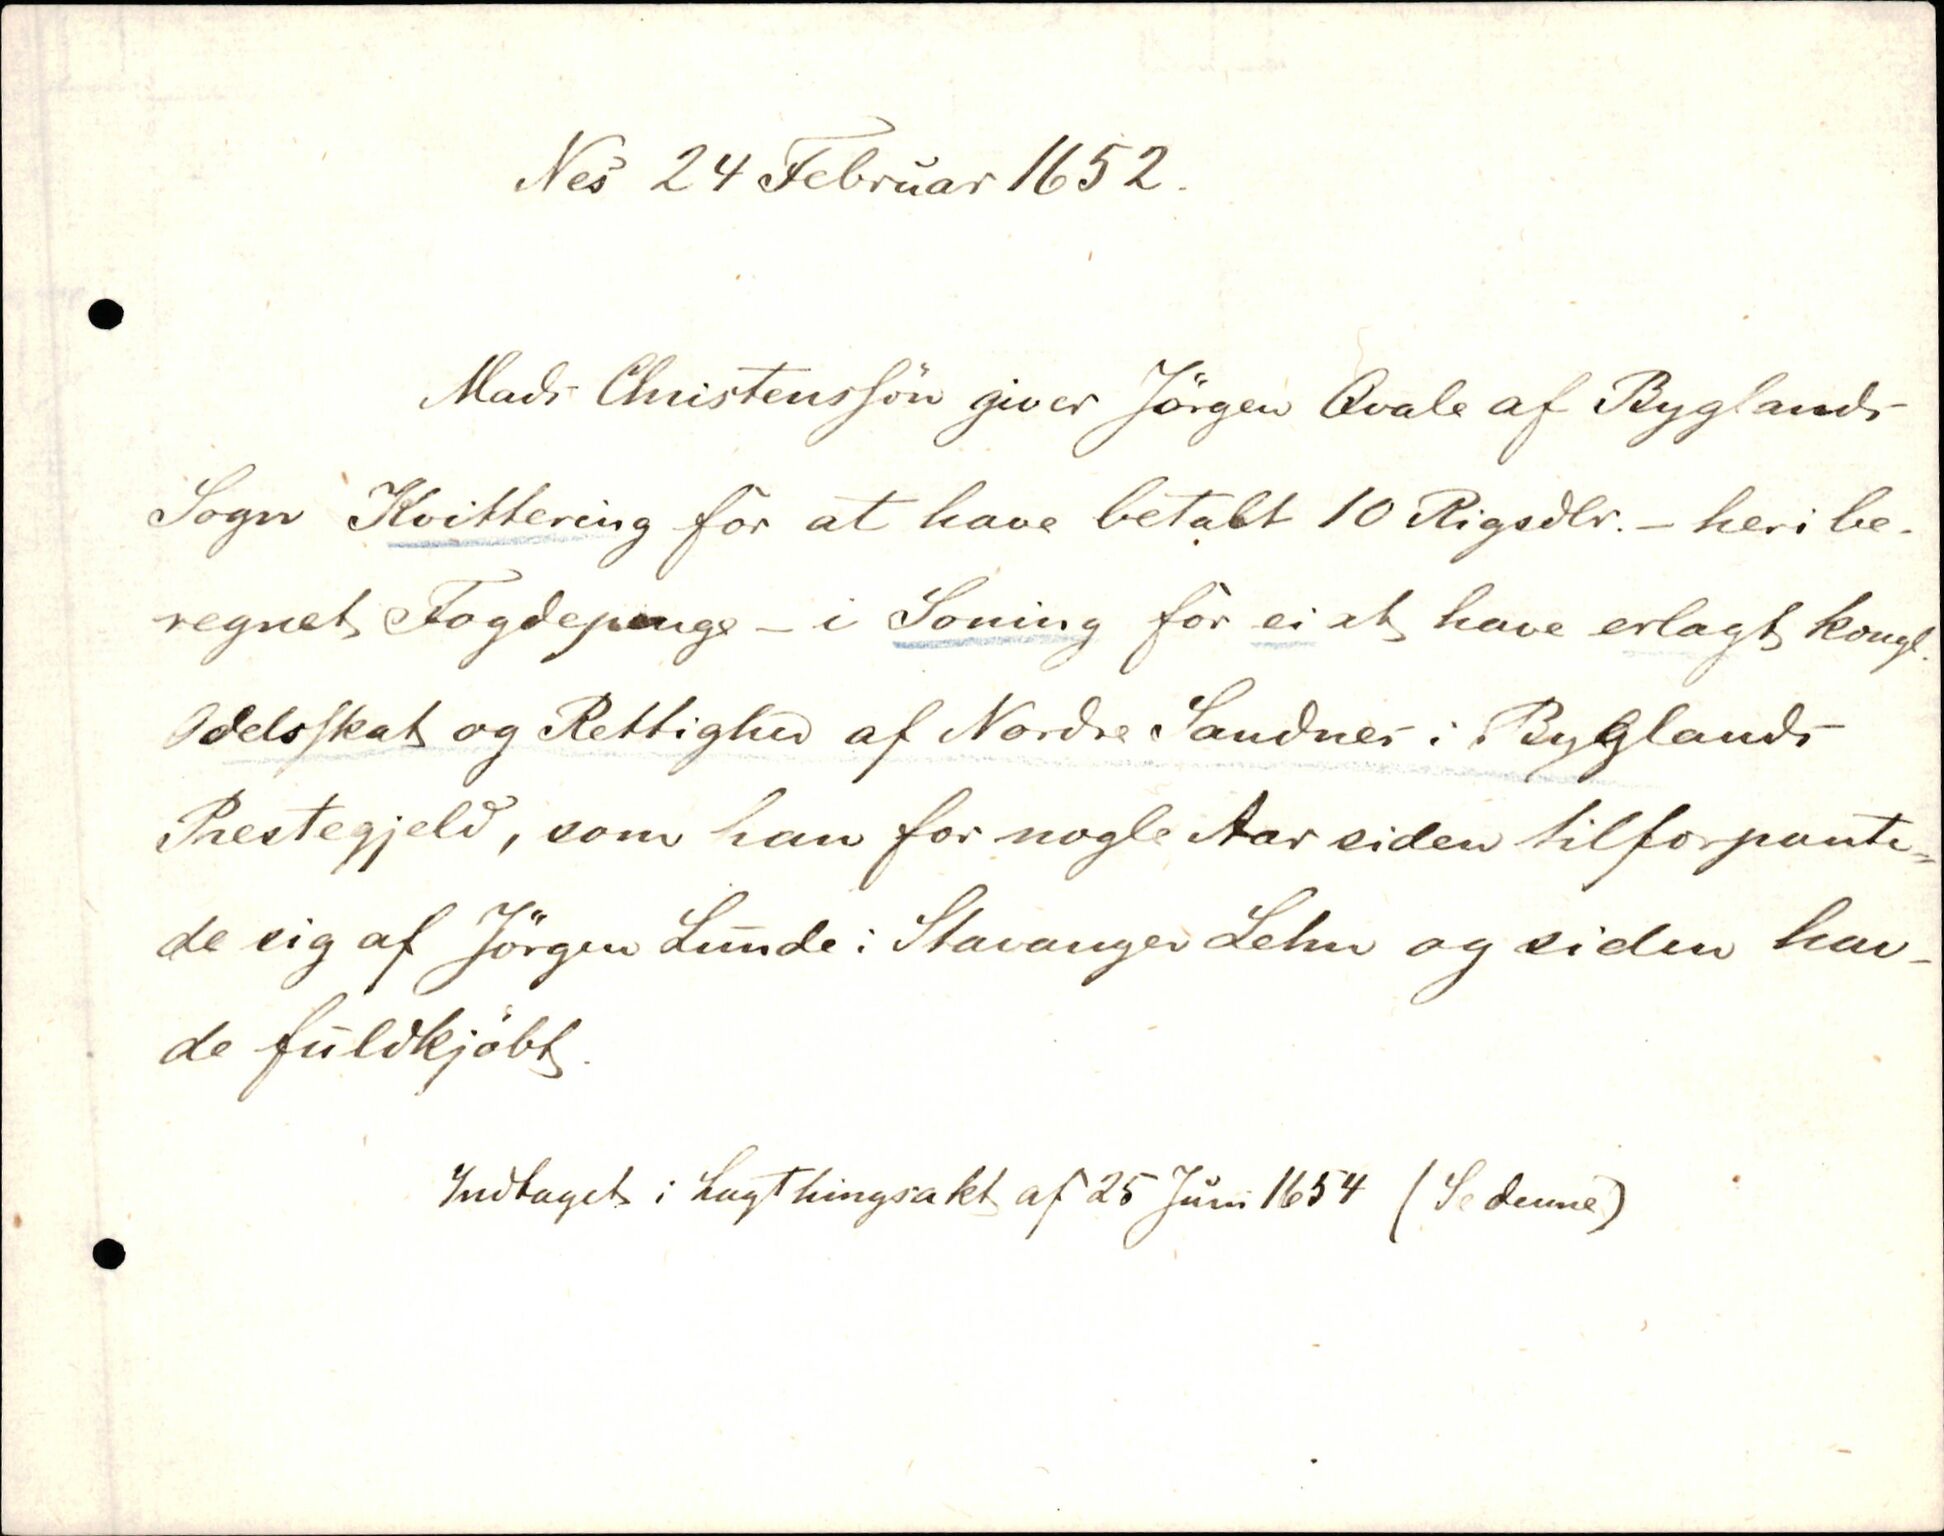 Nes 24 Februar 1652.
Mads Christenssön giver Jörgen Qvale af Byglands
Sogn Kvittering for at have betalt 10 Rigsdlr. – heri be-
regnet Fogdepenge – i Soning for ei at have erlagt kongl.
Odelsskat og Rettighed af Nordre Sandnes i Byglands
Prestegjeld, som han for nogle Aar siden tilforpante-
de sig af Jörgen Lunde i Stavanger Lehn og siden hav-
de fuldkjöbt.
Indtaget i Lagthingsakt af 25 Juni 1654 (Se denne)